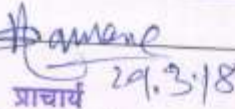 29.3.18
प्राचार्य